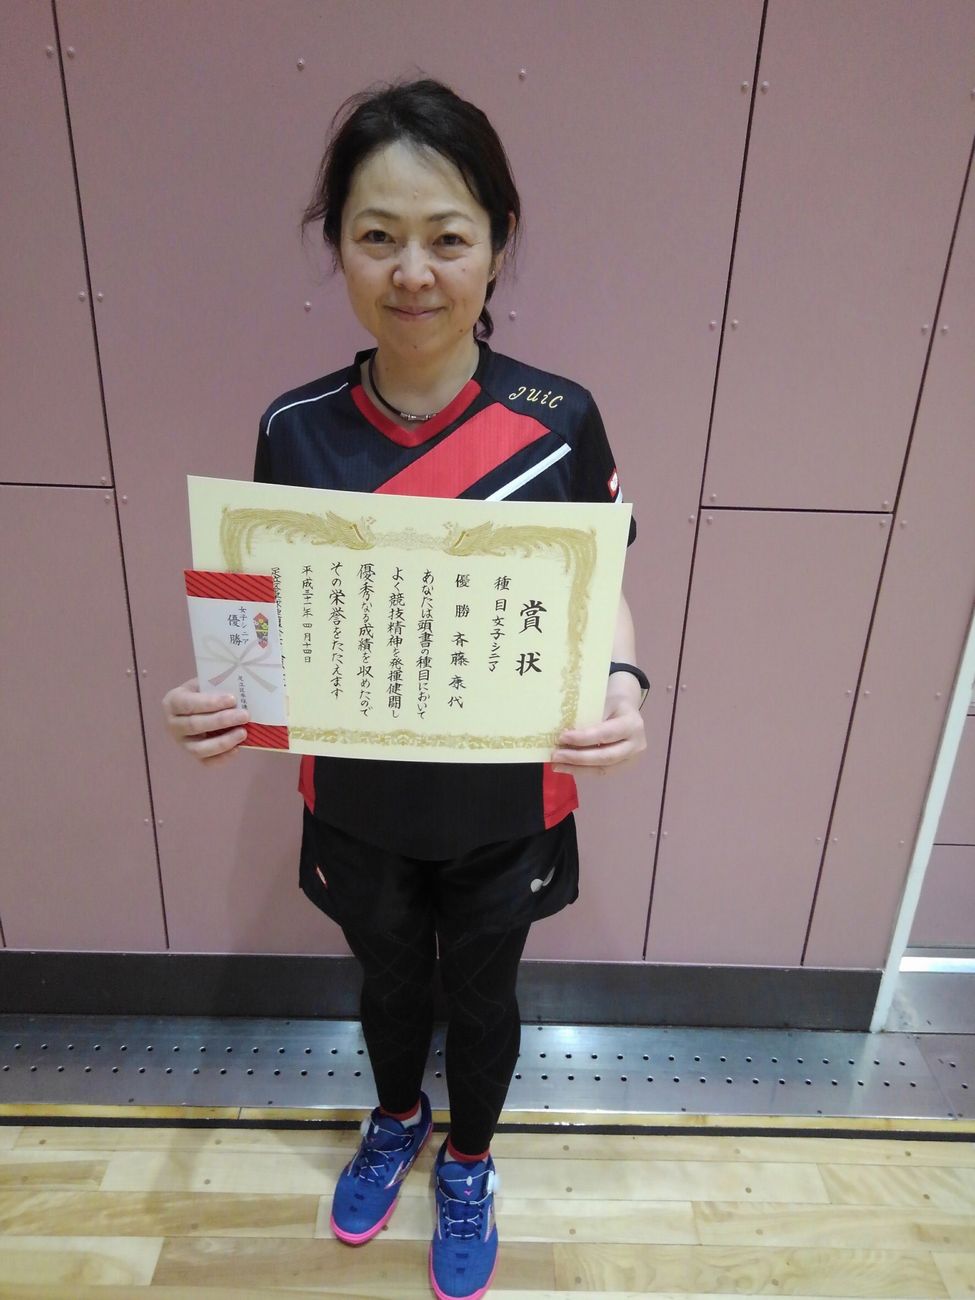 JUiC
賞状
種目女子シニア
優勝 斉藤康代
あなたは頭書の種目において
よく競技精神を発揮健闘し
優秀なる成績を収めたので
その栄誉をたたえます
平成三十一年四月十四日
女子シニア
優勝